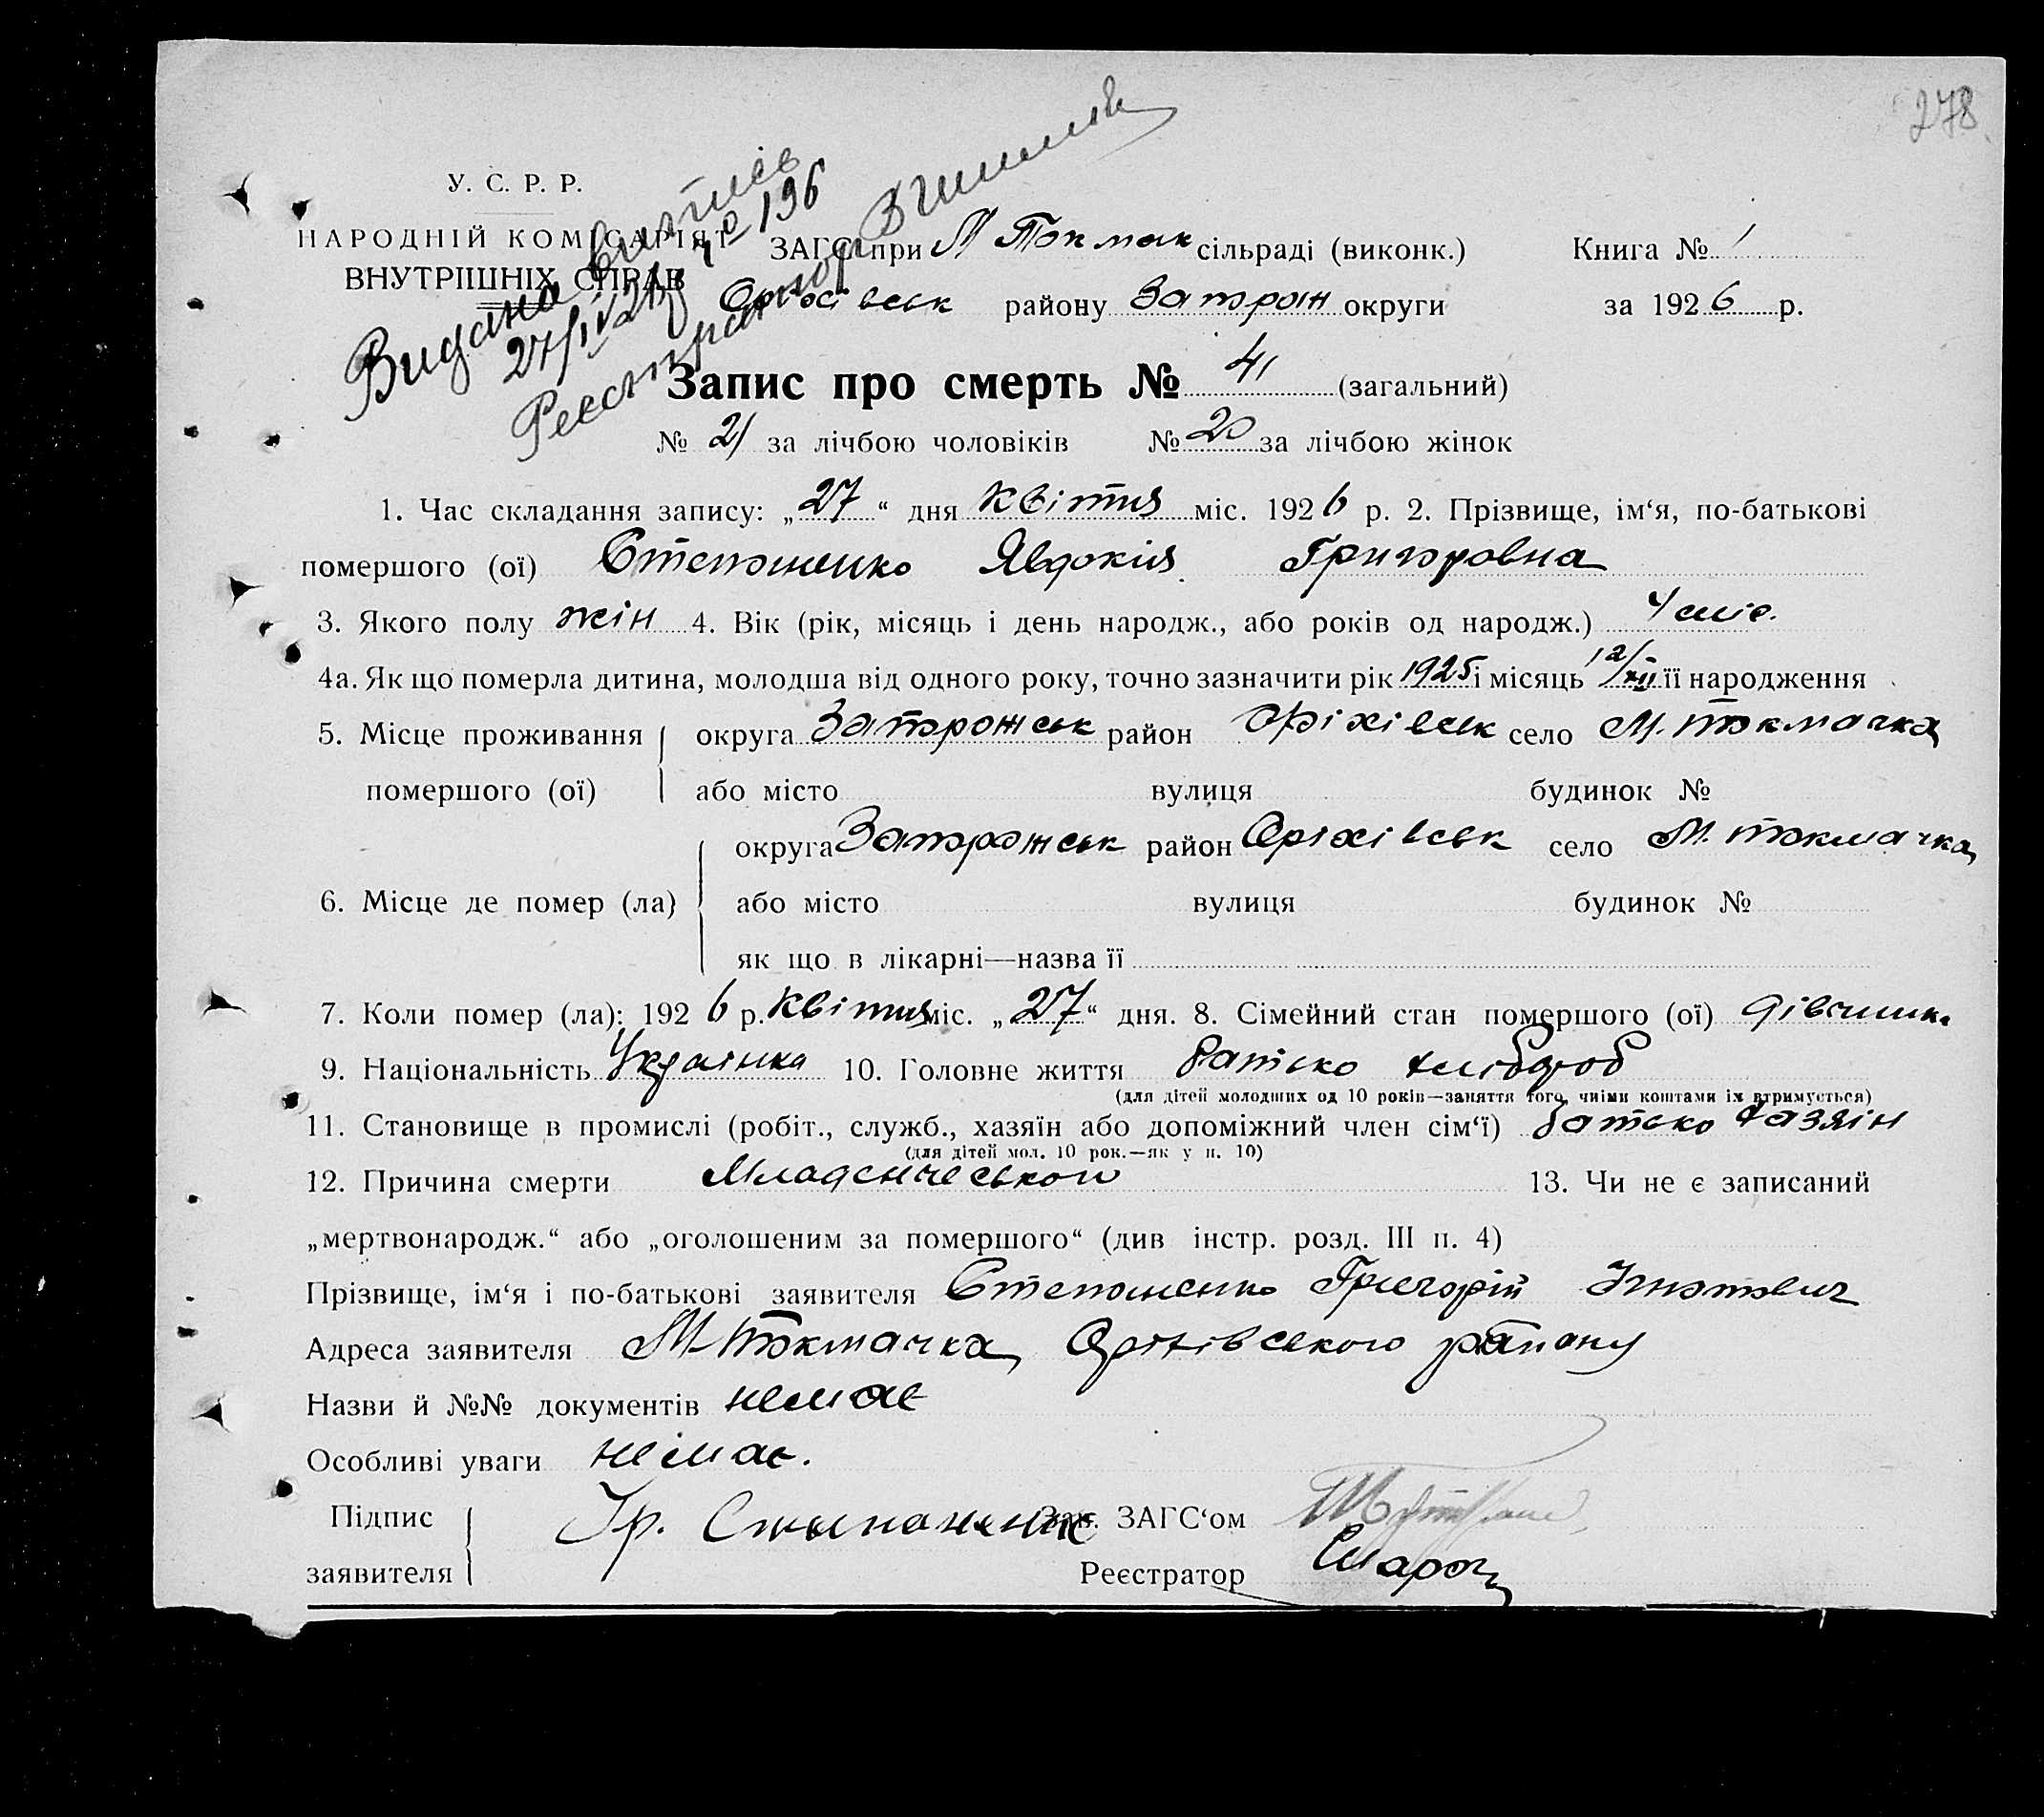 278
У. С. Р. Р.
НАРОДНІЙ КОМІСАРІЯТ
ВНУТРІШНІХ СПРАВ
Видано виппісь
27/IV 26 р № 196
Реєстратор
ЗАГС при М Токмак сільраді (виконк.) Книга № 1
Оріхівськ району Запорож округи за 1926 р.
Запис про смерть № 41 (загальний)
№ 21 за лічбою чоловіків № 20 за лічбою жінок
1. Час складання запису: „27“ дня Квітня міс. 1926 р. 2. Прізвище, ім‘я, по-батькові
помершого (ої) Степаненко Явдокія Григоровна
3. Якого полу жін 4. Вік (рік, місяць і день народж., або років од народж.) 4 міс.
4а. Як що померла дитина, молодша від одного року, точно зазначити рік 1925 і місяць 12/XII її народження
5. Місце проживання округа Запорожськ район Оріхівськ село М. Токмачка
помершого (ої) або місто вулиця будинок №
округа Запорожськ район Оріхівськ село М. Токмачка
6. Місце де помер (ла) або місто вулиця будинок №
як що в лікарні—назва її
7. Коли помер (ла): 1926 р. Квітня міс. „27“ дня. 8. Сімейний стан помершого (ої) дівчинка
9. Національність Українка 10. Головне життя батько хлібороб
(для дітей молодших од 10 років—заняття того, чиїми коштами їх втримується)
11. Становище в промислі (робіт., служб., хазяїн або допоміжний член сім‘ї) батько хазяїн
(для дітей мол. 10 рок.—як у п. 10)
12. Причина смерти Младенческой 13. Чи не є записаний
„мертвонародж.“ або „оголошеним за помершого“ (див інстр. розд. III п. 4)
Прізвище, ім‘я і по-батькові заявителя Степаненко Григорій Ігнатович
Адреса заявителя М-Токмачка Оріхівського району
Назви й №№ документів немає
Особливі уваги немає.
Підпис Гр. Стыпаненко Зав. ЗАГС‘ом
заявителя Реєстратор